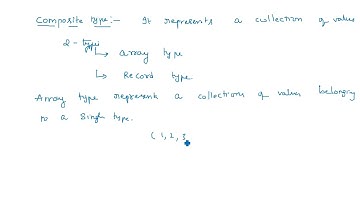 Composite type:- It represents a collection of value
2 - types
↳ array type
↳ Record type
Array type represent a collections of values belonging
to a single type.
( 1, 2, 3